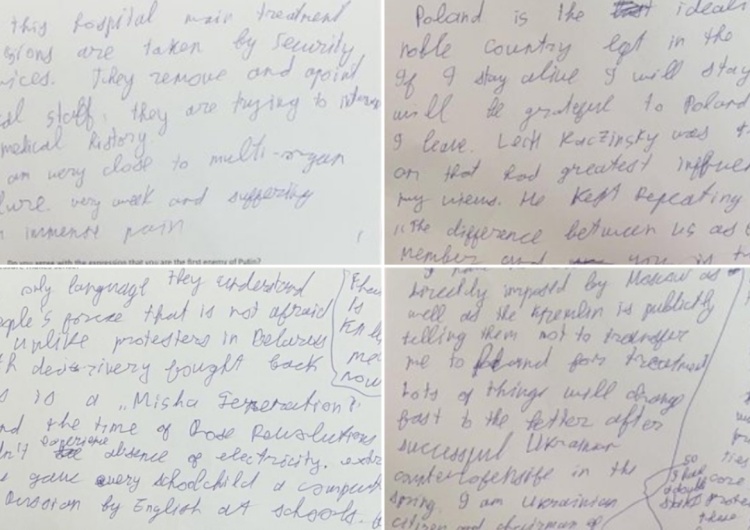 this hospital main treatment
sions are taken by Security
vices. They remove and apoint
cal staff. they are trying to
medical history
am very close to multi-organ
lure. very week and suffering
immense pain
Do you agree with the expression that you are the first enemy of Putin?
Poland is the ideali
noble country left in the
If I stay alive I will stay
will be grateful to Poland
I leave. Lech Kaczinsky was
on that had greatest influen
my views. He kept repeating
"the difference between us as
member and you is
only language they understand
eople's force that is not afraid
unlike protesters in Belarus
fought back
is a "Misha Generation".
nd the time of Rose Revolutions
dn't experience absence of electricity.
gave every schoolchild a comput
version by English at schools.
me
now
directly imposed by Moscow as
well as the Kremlin is publicly
telling them not to transfer
me to Poland for treatment
Lots of things will change
fast to the better after
successful Ukrainian
counteroffensive in the
spring. I am Ukrainian
citizen and chairman of
so